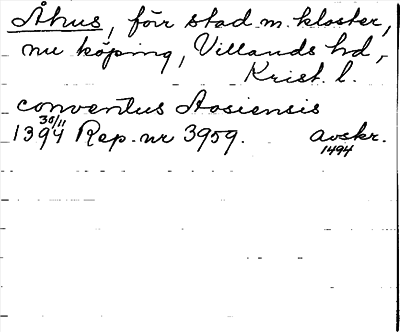 Åhus, förr stad m. kloster,
nu köping, Villands hd,
Krist. l.
conventus Aosiensis
30/11
1394 Rep. nr 3959. avskr.
1494